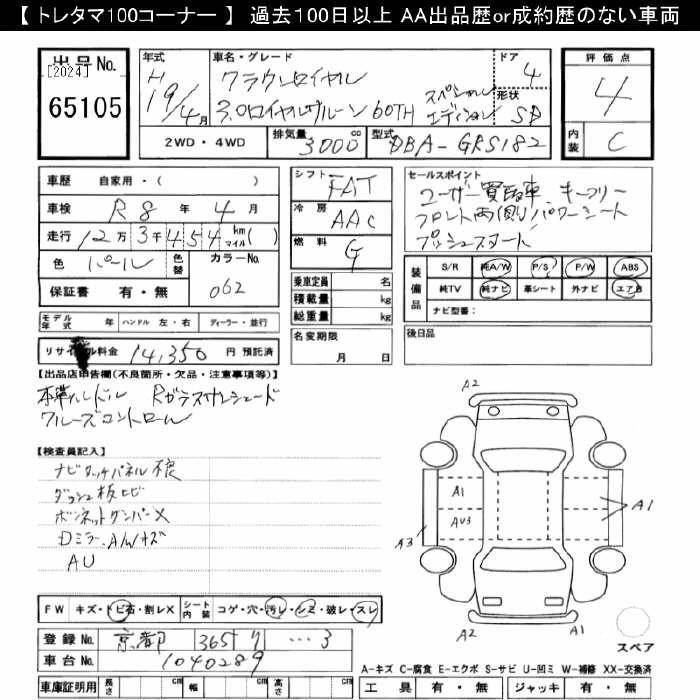 【 トレタマ100コーナー 】 過去100日以上 AA出品歴or成約歴のない車両
出品No.
[2024]
65105
年式
H
19/4月
車名・グレード
クラウンロイヤル
3.0ロイヤルサルーン 60TH スペシャルエディション
ドア
4
形状
SD
評価点
4
内装
C
2WD・4WD
排気量
3000 cc
型式
DBA-GRS182
車歴 自家用・( )
車検 R8 年 4 月
走行 12 万 3 千 4 5 4 km マイル ( )
色 パール 色替 カラーNo. 062
保証書 有・無
モデル年式 年 ハンドル 左・右 ディーラー・並行
リサイクル料金 14,350 円 預託済
シフト FAT
冷房 AAC
燃料 G
乗車定員 名
積載量 kg
総重量 kg
名変期限
月 日
セールスポイント
ユーザー買取車 キーフリー
フロント両側パワーシート
プッシュスタート
装備品
S/R 純A/W P/S P/W ABS
純TV 純ナビ 革シート 外ナビ エアB
ナビ型番:
後日品
【出品店申告欄(不良箇所・欠品・注意事項等)】
本革ハンドル Rガラスサンシェード
クルーズコントロール
【検査員記入】
ナビタッチパネル不良
ダッシュ板ヒビ
ボンネットダンパーX
Dミラー、A/Wキズ
AU
A2
A1
AU3
A3
A1
A2
A1
スペア
FW キズ・トビ石・割レX シート内装 コゲ・穴・汚レ・シミ・破レ・スレ
登録No. 京都 365 リ ・・・3
車台No. 1040289
車庫証明用 長さ cm 幅 cm 高さ cm
A-キズ C-腐食 E-エクボ S-サビ U-凹ミ W-補修 XX-交換済
工具 有・無 ジャッキ 有・無